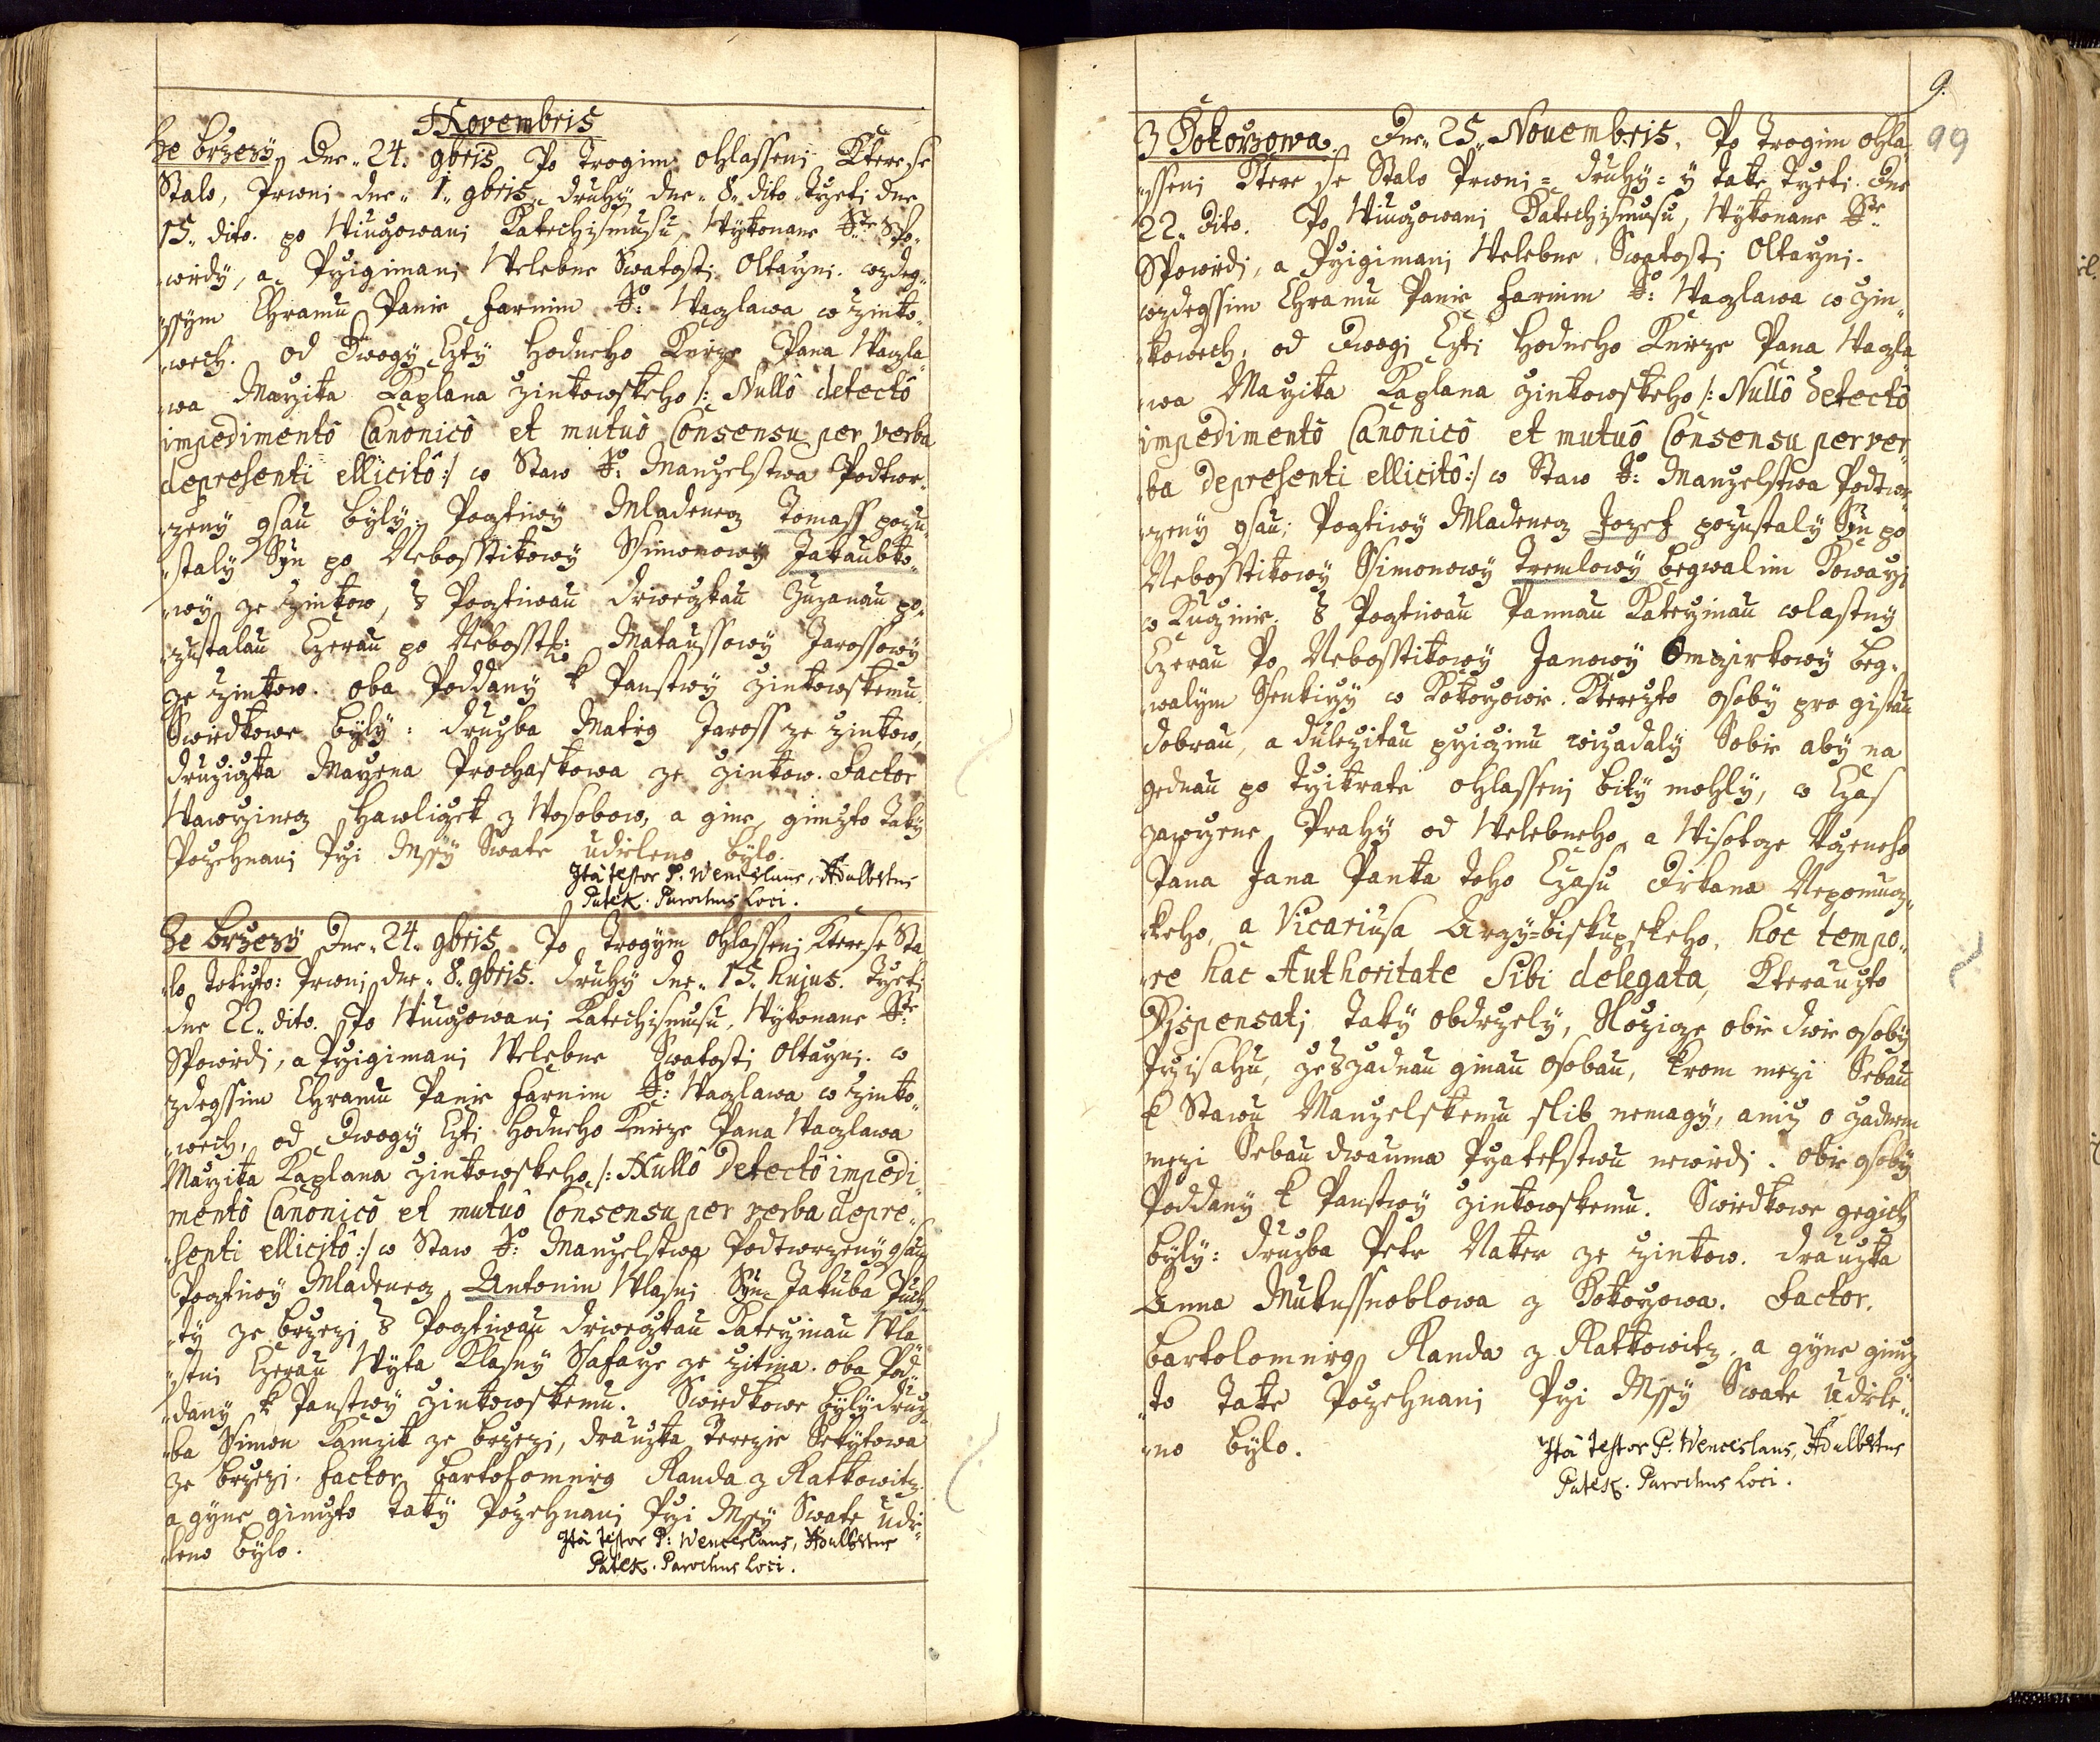 Novembris
Ze Brzezy Dne „24. 9bris, Po trogim ohlasseni Ktere se
Stalo, Prwni dne „1„ 9bris, druhy dne „8„ dito Trzeti dne
15„ dito. po Wiuczowani Katechismusu, Wykonane Ste Spo„
„wiedy, a Przigimani Welebne Swatosti Oltarzni. wzdeg„
„ssym Chramu Panie Farnim So: Waczlawa w Zinko„
„wech. od Dwogy Czty Hodneho Knieze Pana Waczla„
„wa Marzika Kaplana Zinkowskeho /: Nullô detectô
impedimentô Canonicô et mutuô Consensu per verba
depresenti ellicitô :/ w Staw So: Manzelstwa Podtwr„
„zeny gsau byly: Pocztiwy Mladenecz Tomass pozu„
„staly Syn po Nebosstikowy Ssimonowy Jakaubko„
„wy ze Zinkow, s Pocztiwau diweczkau Zuzanau po„
„zustalau Czerau po Nebosstko: Mataussowy Jarossowy
ze Zinkow. oba Poddany k Panstwy Zinkowskemu
Swiedkowe byly: druzba Matieg Jaross ze Zinkow,
druziczka Marzena Prochaskowa ze Zinkow. Factor
Wawrzinecz Hawliczek z Wosobow, a gine, gimzto Taky
Pozehnani Przi Mssy Swate udieleno bylo.
Ita testor P: Wenceslaus, Adalbertus
Patek. Parochus Loci.
Ze Brzezy Dne „24„ 9bris, Po Trogym ohlasseni Ktere se Sta
„lo, Totizto: Prwni dne „8„ 9bris. druhy dne „15„ hujus. Trzeti
dne 22„ dito. Po Wiuczowani Katechismusu, Wykonane Ste
Spowiedi, a Przigimani Welebne Swatosti Oltarzni. w
zdegssim Chramu Panie Farnim So: Waczlawa w Zinko„
„wech, od Dwogy Czti Hodneho Knieze Pana Waczlawa
Marzika Kaplana Zinkowskeho /: Nullô Detectô impedi„
mentô Canonicô et mutuô Consensu per verba depre„
„senti ellicitô :/ w Staw So: Manzelstwa Podtwrzeny gsau
Pocztiwy Mladenecz Antonin Wlasni Syn Jakuba Puch„
„ty ze Brzezi s Pocztiwau diweczkau Katerzinau Wla„
„stni Czerau Wyta Klasny Ssafarze ze Zitina. oba Pod„
„dany k Panstwy Zinkowskemu. Swiedkowe byly druz„
„ba Ssimon Kamzik ze Brzezi, drauzka Terezie Sekytowa
ze Brzezi. Factor Bartolomieg Randa z Ratkowitz
a gyne gimzto Taky Pozehnani Przi Mssy Swate udie„
„leno bylo.
Ita testor P: Wenceslaus, Adalbertus
Patek. Parochus Loci.
9.
99
Z Kokorzowa. Dne „25„ Nouembris. Po Trogim ohla„
„sseni Ktere se Stalo Prwni = druhy = y take Trzeti. dne
22„ dito. Po Wiuczowani Katechismusu, Wykonane Ste
Spowiedi, a Przigimani Welebne Swatosti Oltarzni.
wzdegssim Chramu Panie Farnim So: Waczlawa w Zin„
„kowech, od Dwogi Czti Hodneho Knieze Pana Waczla„
„wa Marzika Kaplana Zinkowskeho /: Nullô Detectô
impedimentô Canonicô et mutuô Consensu per ver„
„ba depresenti ellicitô :/ w Staw So: Manzelstwa Podtwr„
„zeny gsau; Pocztiwy Mladenecz Jozef pozustaly Syn po
Nebosstikowy Ssimonowy Tremlowy begwalim Kowarzi
w Kuczinie. s Pocztiwau Pannau Katerzinau wlastny
Czerau Po Nebosstikowy Janowy beg„
„walym Ssenkirzy w Kokorzowie. Kterezto osoby pro gistau
dobrau, a dulezitau prziczinu wizadaly Sobie aby na
gednau po Trzikrate ohlasseni bity mohly, w Czas
zawrzene Prahy od Welebneho, a Wisocze Uczeneho
Pana Jana Panka toho Czasu diekana Nepomucz„
„keho, a Vicariusa Arzy=biskupskeho, hoc tempo„
„re hac Authoritate Sibi delegata, Kterauzto
Dispensati Taky obdrzely, Slozicze obie dwie osoby
Przisahu, ze s zadnau ginau osobau, krom mezi Sebau
k Stawu Manzelskemu slib nemagy, aniz o zadnem
mezi Sebau dwauma Przatelstwu newiedi. obie osoby
Poddany k Panstwy Zinkowskemu. Swiedkowe gegich
byly: druzba Petr Nater ze Zinkow. drauzka
Anna Mukussnoblowa z Kokorzowa. Factor.
Bartolomieg Randa z Ratkowitz. a gyne gimz„
„to Take Pozehnani Przi Mssy Swate udiele„
„no bylo.
Ita testor P: Wenceslaus, Adalbertus
Patek. Parochus Loci.